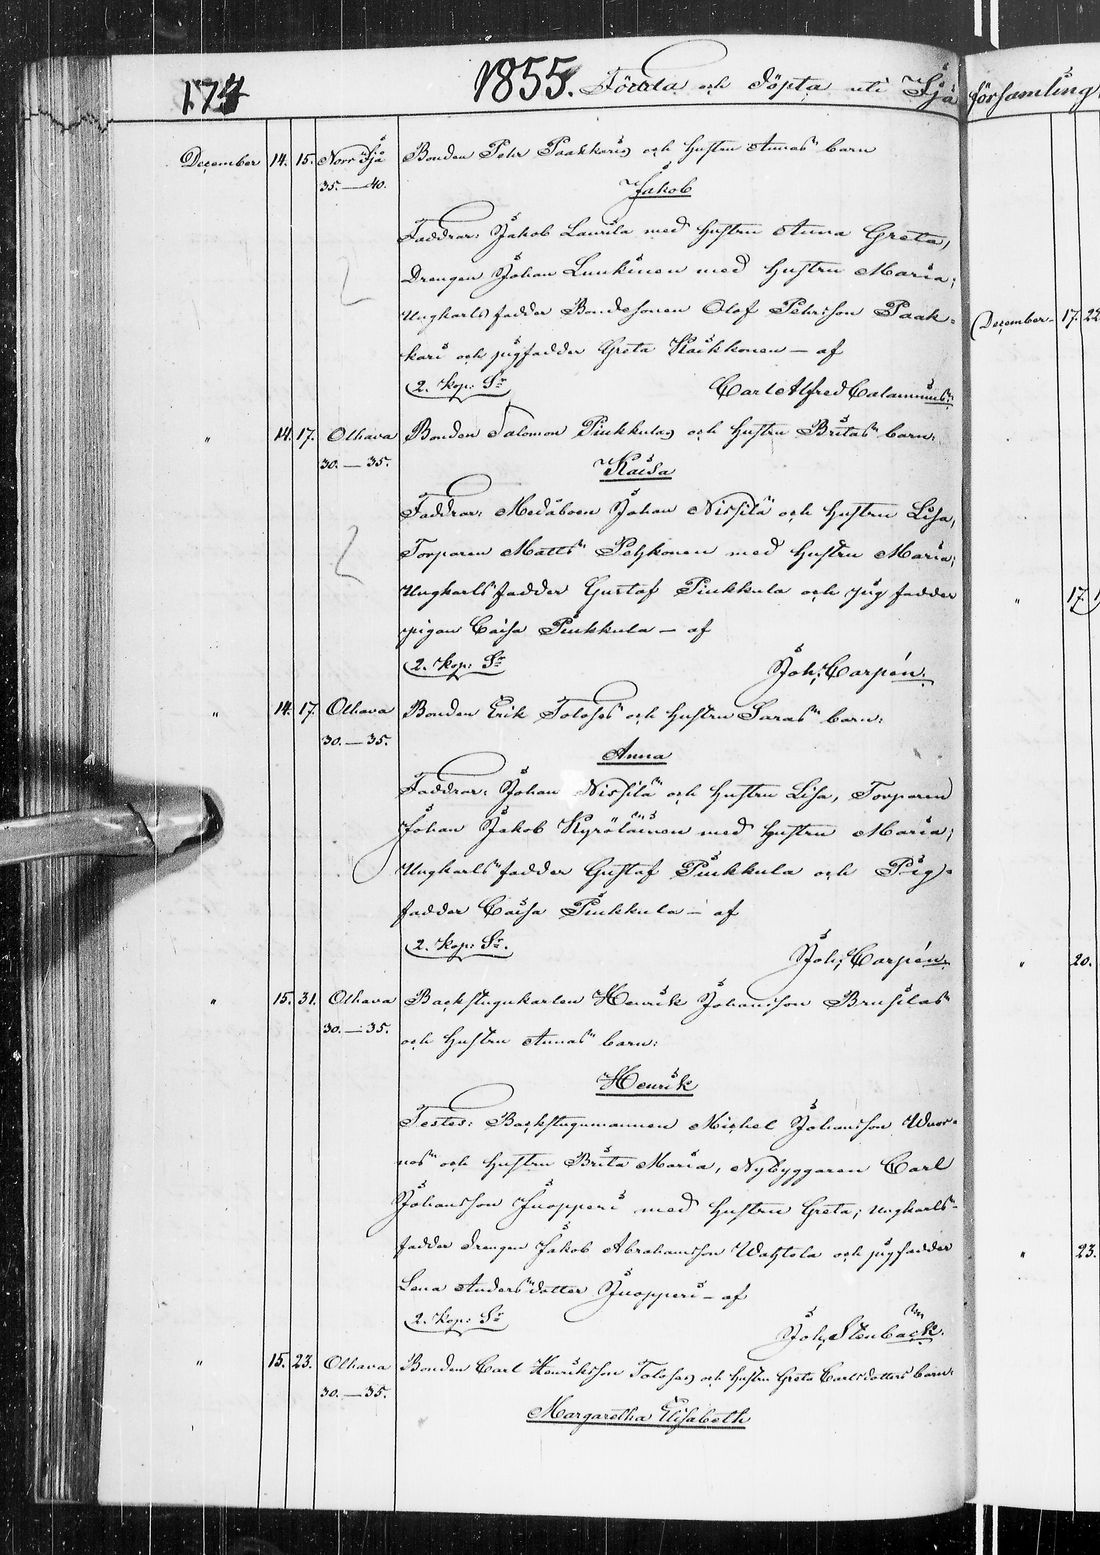 174
1855. Födda och Döpta uti Ijå
församling
December 14. 15. Norr Ijå Bonden Pehr Paakkaris och hustru Annas barn
35.—40.
Jakob
Faddrar: Jakob Laurila med hustru Anna Greta,
Drengen Johan Luukinen med hustru Maria;
Ungkarls fadder Bondesonen Olof Pehrsson Paak-
kari och pigfadder Greta Kaikkonen — af
2. kop: Sr
Carl Alfred Calamnius:
" 14. 17. Olhava Bonden Salomon Pinkkulas och hustru Britas barn:
30.—35.
Kaisa
Faddrar: Medåboen Johan Nissilä och hustru Lisa,
Torparen Matts Pelkonen med hustru Maria;
Ungkarls fadder Gustaf Pinkkula och pigfadder
pigan Caisa Pinkkula — af
2. kop: Sr
Joh: Carpén.
" 14. 17. Olhava Bonden Erik Tolosés och hustru Saras barn:
30.—35.
Anna
Faddrar: Johan Nissilä och hustru Lisa, Torparen
Johan Jakob Kyröläinen med hustru Maria;
Ungkarls fadder Gustaf Pinkkula och Pig-
fadder Caisa Pinkkula — af
2. kop: Sr.
Joh: Carpén.
" 15. 31. Olhava Backstugukarlen Henrik Johansson Brusilas
30.—35.
och hustru Annas barn:
Henrik
Testes: Backstugumannen Michel Johansson Wuor-
nos och hustru Brita Maria, Nybyggaren Carl
Johansson Juopperi med hustru Greta; ungkarls-
fadder drengen Jakob Abrahamsson Wahtola och pigfadder
Lena Anders dotter Juopperi — af
2. kop: Sr
Joh: Stenbäck.
" 15. 23. Olhava Bonden Carl Henriksson Tolosés och hustru Greta Carlsdotters barn:
30.—35.
Margaretha Elisabeth
December 17. 22
" 17. 1
" 20.
" 23.